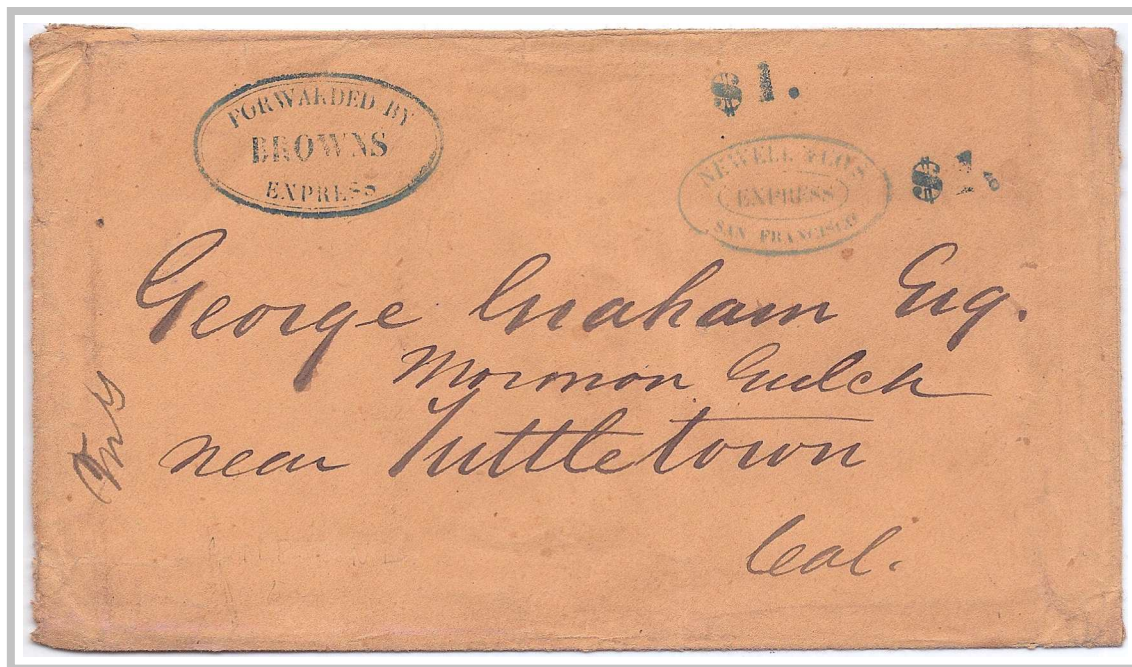 FORWARDED BY
BROWNS
EXPRESS
$ 1.
NEWELL & CO'S
EXPRESS
SAN FRANCISCO
$ 1.
George Graham Esq.
Mormon Gulch
near Tuttletown
Cal.